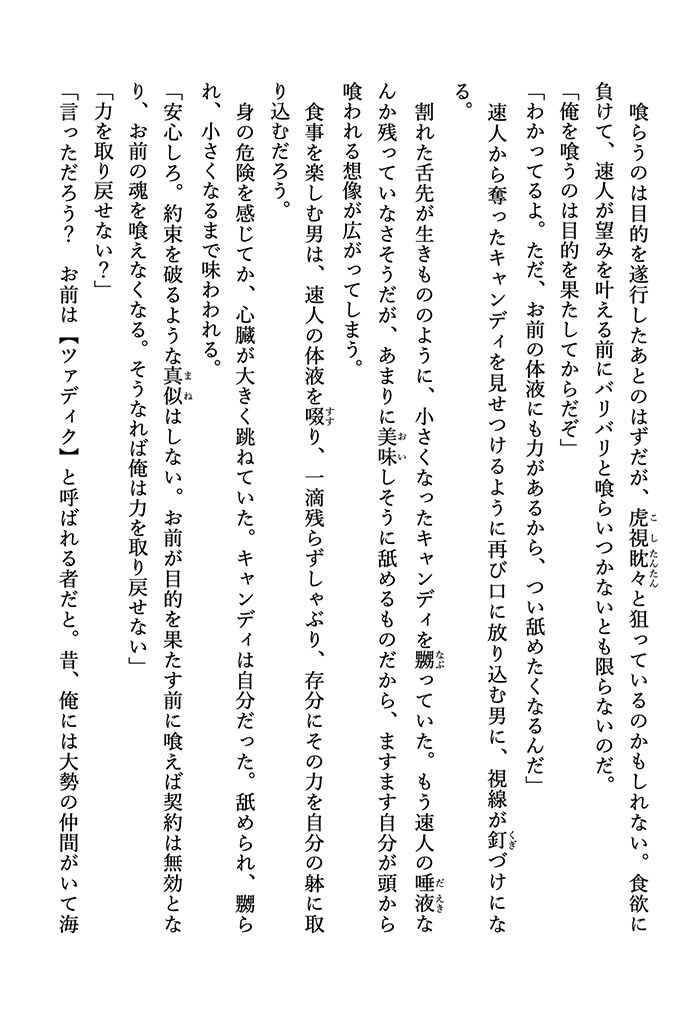 喰らうのは目的を遂行したあとのはずだが、虎視眈々と狙っているのかもしれない。食欲に
負けて、速人が望みを叶える前にバリバリと喰らいつかないとも限らないのだ。
「俺を喰うのは目的を果たしてからだぞ」
「わかってるよ。ただ、お前の体液にも力があるから、つい舐めたくなるんだ」
速人から奪ったキャンディを見せつけるように再び口に放り込む男に、視線が釘づけにな
る。
割れた舌先が生きもののように、小さくなったキャンディを嬲っていた。もう速人の唾液な
んか残っていなさそうだが、あまりに美味しそうに舐めるものだから、ますます自分が頭から
喰われる想像が広がってしまう。
食事を楽しむ男は、速人の体液を啜り、一滴残らずしゃぶり、存分にその力を自分の躰に取
り込むだろう。
身の危険を感じてか、心臓が大きく跳ねていた。キャンディは自分だった。舐められ、嬲ら
れ、小さくなるまで味わわれる。
「安心しろ。約束を破るような真似はしない。お前が目的を果たす前に喰えば契約は無効とな
り、お前の魂を喰えなくなる。そうなれば俺は力を取り戻せない」
「力を取り戻せない？」
「言っただろう？　お前は【ツァディク】と呼ばれる者だと。昔、俺には大勢の仲間がいて海